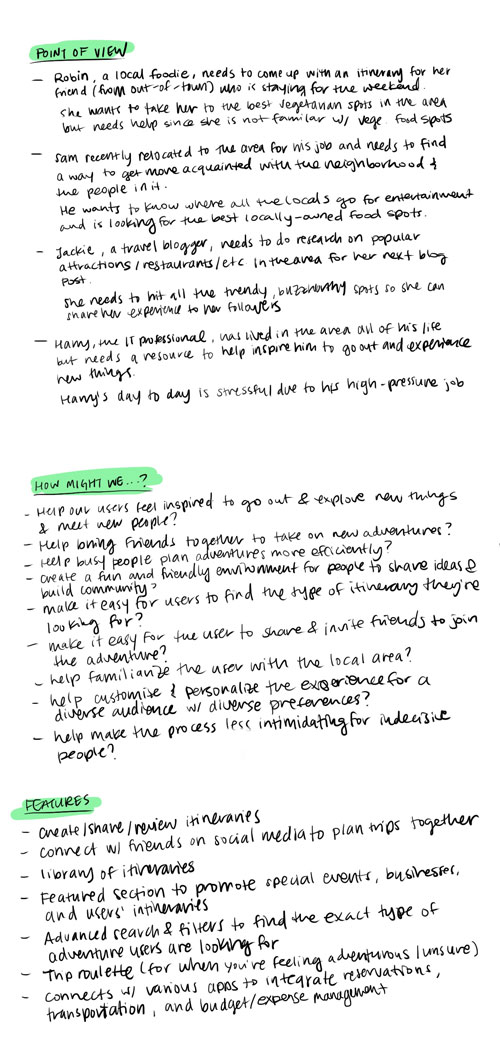 POINT OF VIEW
- Robin, a local foodie, needs to come up with an itinerary for her
friend (from out-of-town) who is staying for the weekend.
She wants to take her to the best vegetarian spots in the area
but needs help since she is not familar w/ vege. food spots
- Sam recently relocated to the area for his job and needs to find
a way to get more acquainted with the neighborhood &
the people in it.
He wants to know where all the locals go for entertainment
and is looking for the best locally-owned food spots.
- Jackie, a travel blogger, needs to do research on popular
attractions/restaurants/etc. in the area for her next blog
post.
She needs to hit all the trendy, buzzworthy spots so she can
share her experience to her followers
- Harry, the IT professional, has lived in the area all of his life
but needs a resource to help inspire him to go out and experience
new things.
Harry's day to day is stressful due to his high-pressure job
HOW MIGHT WE...?
- Help our users feel inspired to go out & explore new things
& meet new people?
- Help bring friends together to take on new adventures?
- Help busy people plan adventures more efficiently?
- create a fun and friendly environment for people to share ideas &
build community?
- make it easy for users to find the type of itinerary they're
looking for?
- make it easy for the user to share & invite friends to join
the adventure?
- help familiarize the user with the local area?
- help customize & personalize the experience for a
diverse audience w/ diverse preferences?
- help make the process less intimidating for indecisive
people?
FEATURES
- create/share/review itineraries
- connect w/ friends on social media to plan trips together
- library of itineraries
- Featured section to promote special events, businesses,
and users' intineraries
- Advanced search & filters to find the exact type of
adventure users are looking for
- Trip roulette (for when you're feeling adventurous/unsure)
- connects w/ various apps to integrate reservations,
transportation, and budget/expense management